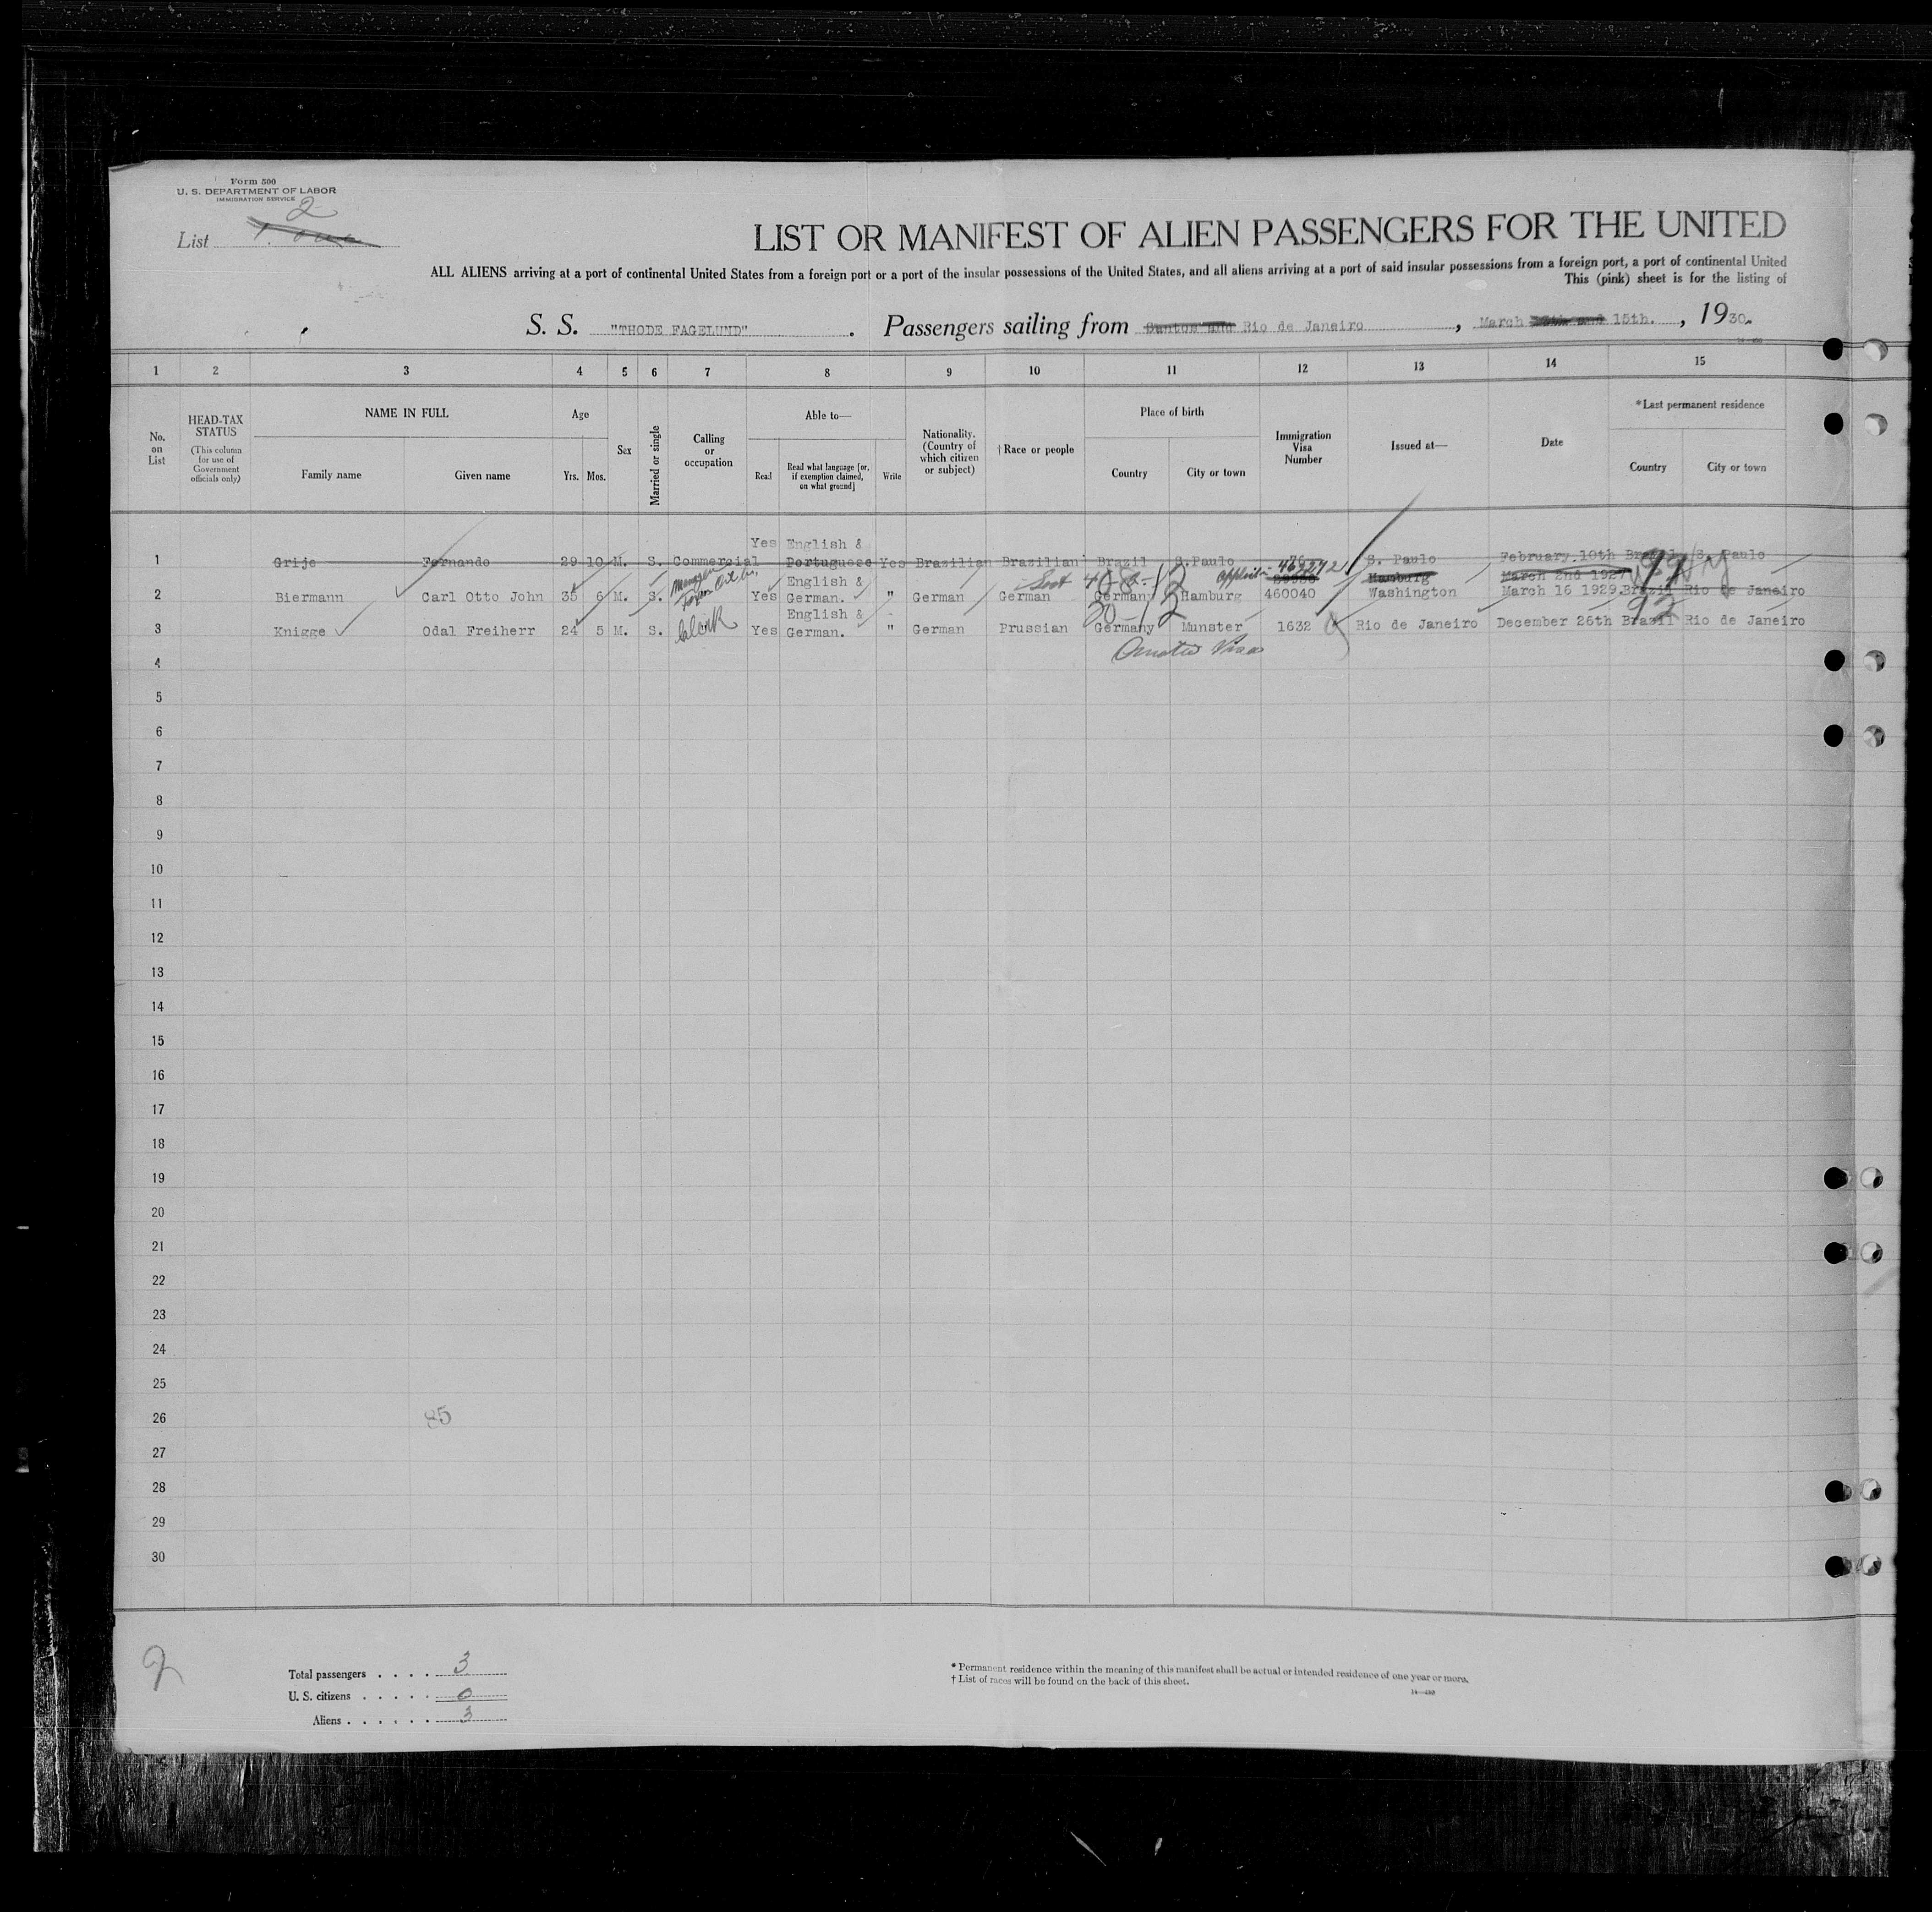 Form 500
U. S. DEPARTMENT OF LABOR
IMMIGRATION SERVICE
2
List
LIST OR MANIFEST OF ALIEN PASSENGERS FOR THE UNITED
ALL ALIENS arriving at a port of continental United States from a foreign port or a port of the insular possessions of the United States, and all aliens arriving at a port of said insular possessions from a foreign port, a port of continental United
This (pink) sheet is for the listing of
S. S. "THODE FAGELUND". Passengers sailing from Santos and Rio de Janeiro, March 15th., 1930.
1 2 3 4 5 6 7 8 9 10 11 12 13 14 15
No. on List
HEAD-TAX STATUS
(This column for use of Government officials only)
NAME IN FULL
Family name Given name
Age
Yrs. Mos.
Sex
Married or single
Calling or occupation
Able to—
Read Read what language [or, if exemption claimed, on what ground] Write
Nationality. (Country of which citizen or subject)
† Race or people
Place of birth
Country City or town
Immigration Visa Number
Issued at—
Date
*Last permanent residence
Country City or town
1 Grije Fernando 29 10 M. S. Commercial Yes English & Portuguese Yes Brazilian Brazilian Brazil S.Paulo 76 S. Paulo February.10th Brazil S. Paulo
468272 Hamburg March 2nd 1927
2 Biermann Carl Otto John 35 6 M. S. Manager Yes English & German. " German German Germany Hamburg 460040 Washington March 16 1929 Brazil Rio de Janeiro
3 Knigge Odal Freiherr 24 5 M. S. Clerk Yes English & German. " German Prussian Germany Munster 1632 Rio de Janeiro December 26th Brazil Rio de Janeiro
4
5
6
7
8
9
10
11
12
13
14
15
16
17
18
19
20
21
22
23
24
25
26
85
27
28
29
30
2
Total passengers . . . . 3
U. S. citizens . . . . . 0
Aliens . . . . . . 3
* Permanent residence within the meaning of this manifest shall be actual or intended residence of one year or more.
† List of races will be found on the back of this sheet.